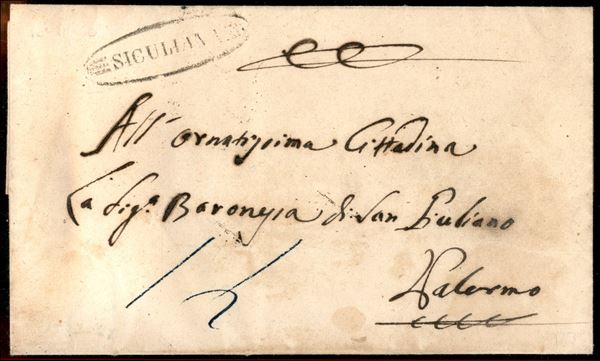 SICULIANA
All' ornatissima Cittadina
La Sig.ª Baronessa di San Giuliano
Palermo